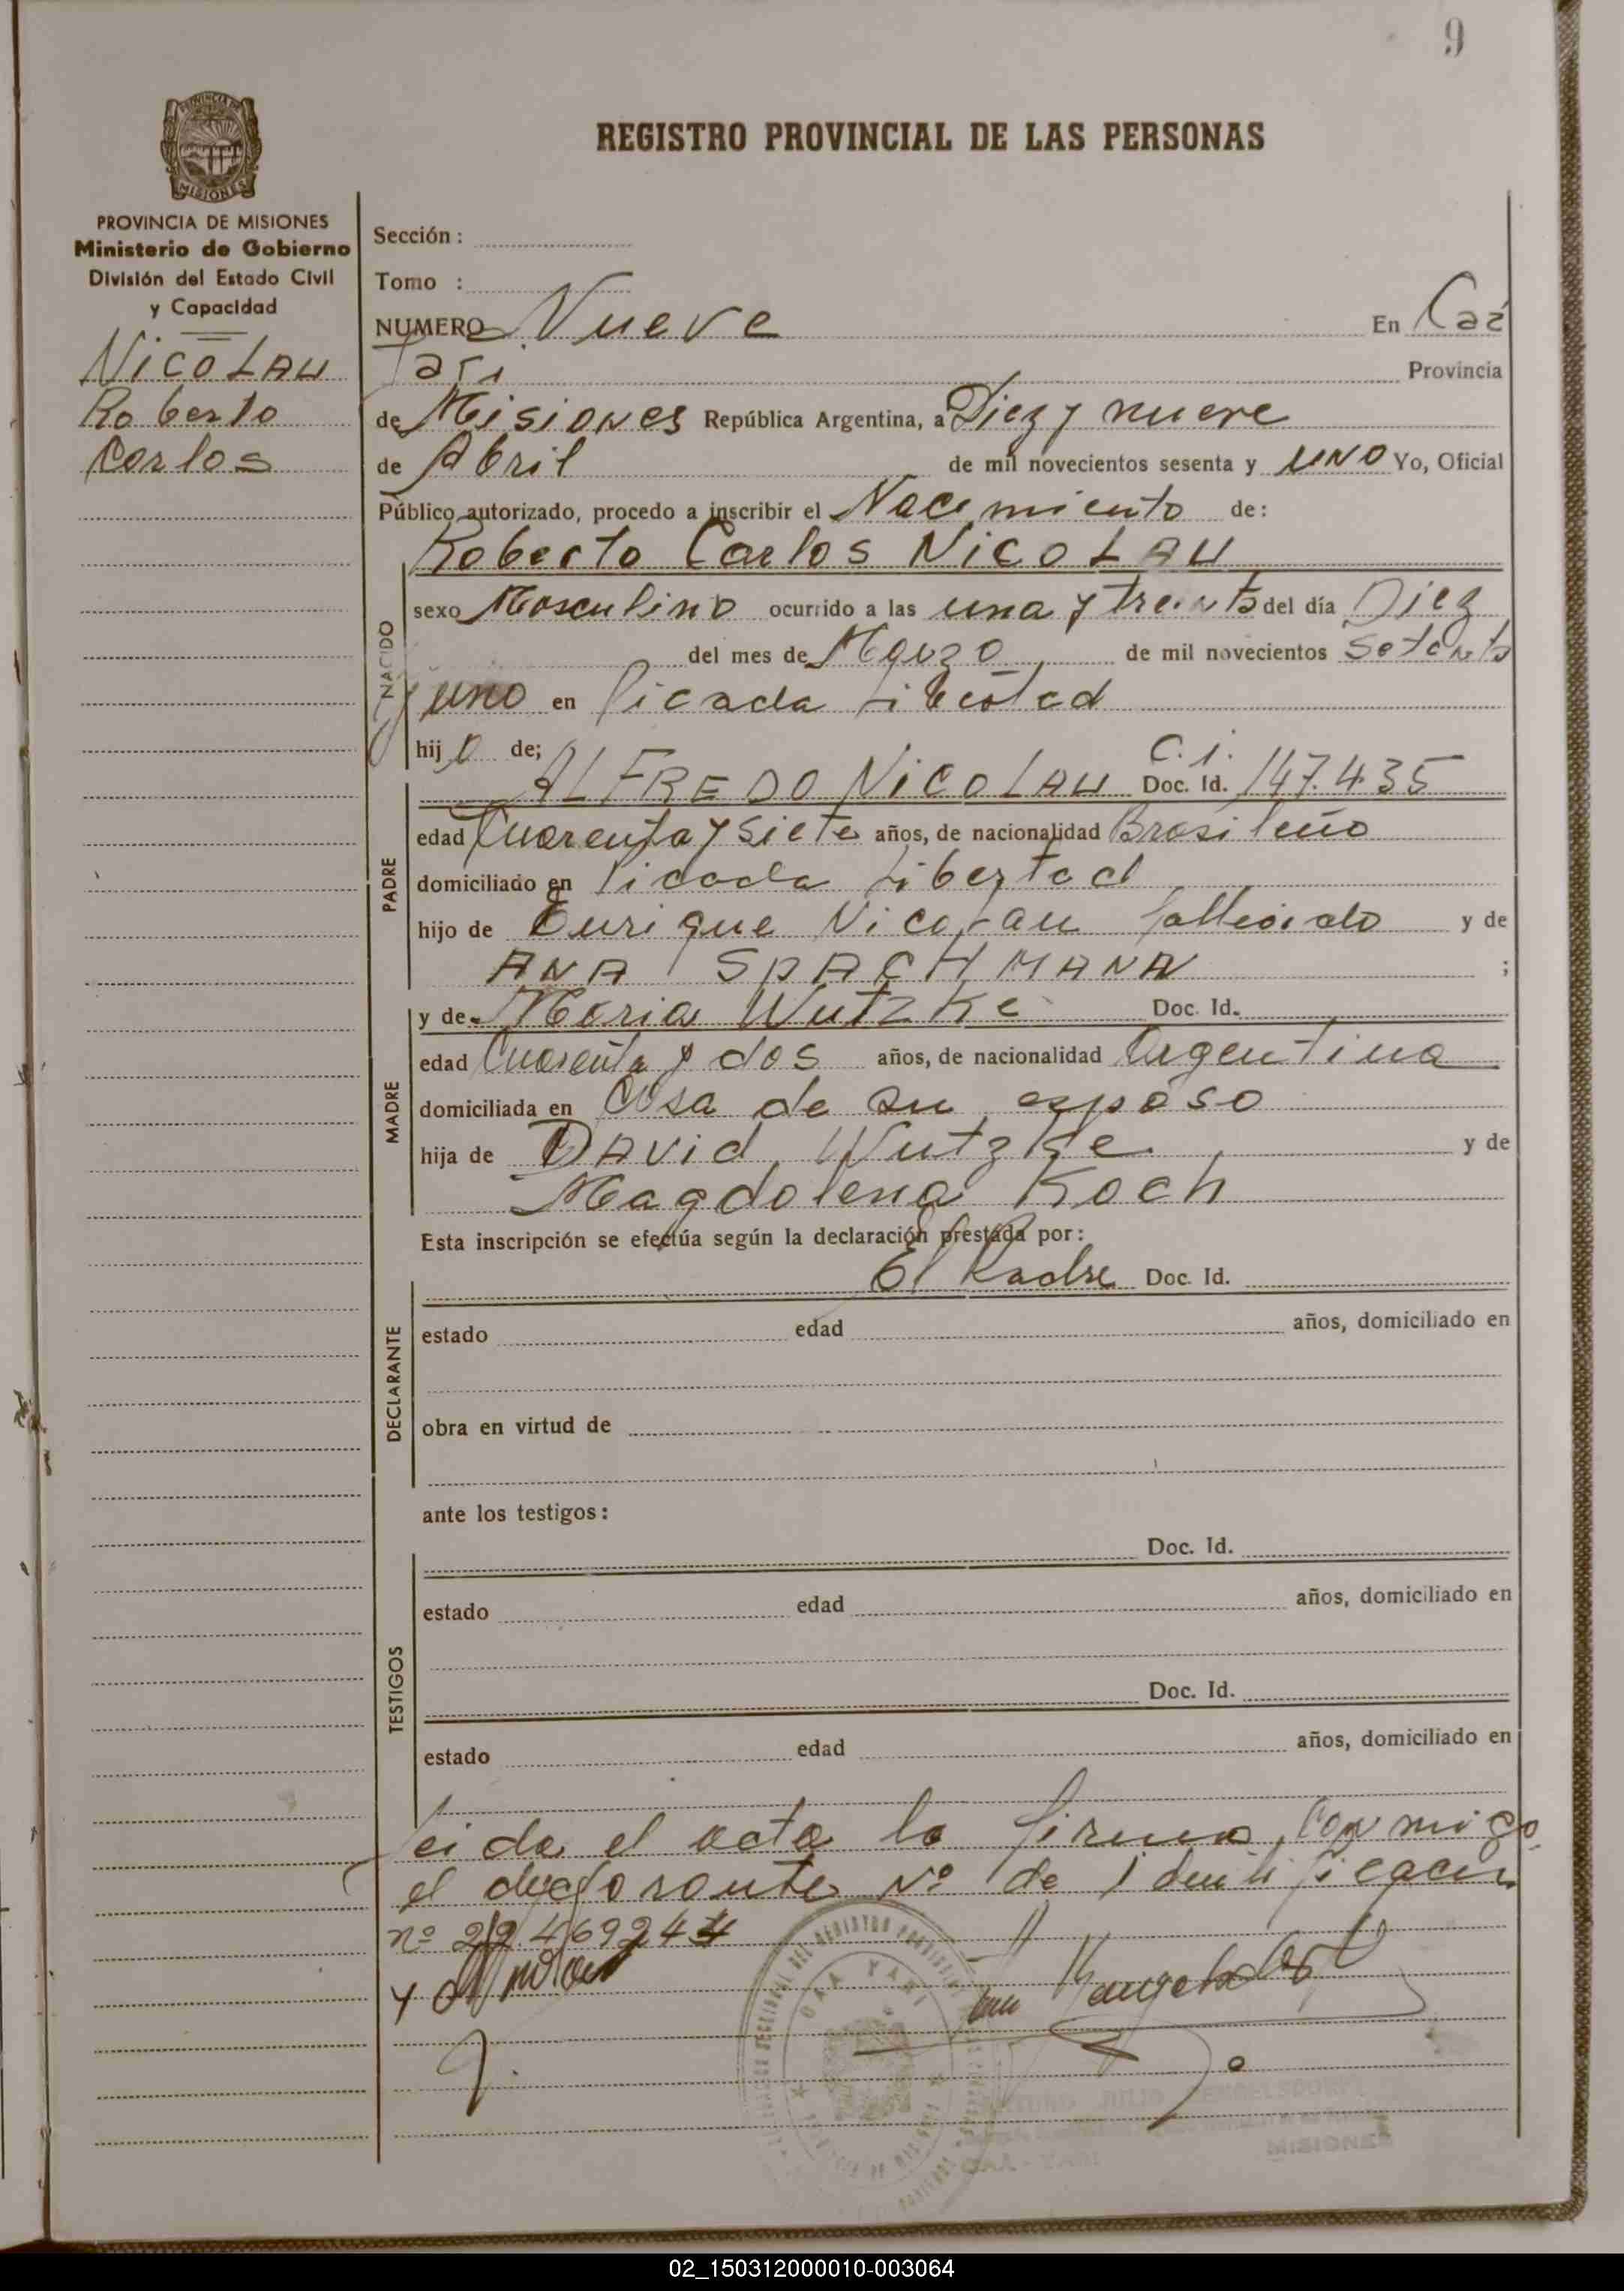 9
REGISTRO PROVINCIAL DE LAS PERSONAS
PROVINCIA DE MISIONES
MISIONES
PROVINCIA DE MISIONES
Ministerio de Gobierno
División del Estado Civil
y Capacidad
NICOLAU
Roberto
Carlos
Sección :
Tomo :
NUMERO Nueve En Caá
Yari Provincia
de Misiones República Argentina, a Diez y nueve
de Abril de mil novecientos sesenta y UNO Yo, Oficial
Público autorizado, procedo a inscribir el Nacimiento de:
Roberto Carlos NICOLAU
NACIDO
sexo Masculino ocurrido a las una y treinta del día Diez
del mes de Marzo de mil novecientos Setenta
y uno en Picada Libertad
hij o de;
C.I.
PADRE
ALFREDO NICOLAU Doc. Id. 147.435
edad Cuarenta y siete años, de nacionalidad Brasileño
domiciliado en Picada Libertad
hijo de Enrique Nicolau fallecido y de
ANA SPACHMANN ;
MADRE
y de Maria Wutzke Doc. Id.
edad Cuarenta y dos años, de nacionalidad Argentina
domiciliada en Casa de su esposo
hija de David Wutzke y de
Magdalena Koch
Esta inscripción se efectúa según la declaración prestada por:
DECLARANTE
El Padre Doc. Id.
estado edad años, domiciliado en
obra en virtud de
ante los testigos:
TESTIGOS
Doc. Id.
estado edad años, domiciliado en
Doc. Id.
estado edad años, domiciliado en
Leida el acta la firma, conmigo
el declarante Nº de identificacion
nº 22.469244
CAA YARI
JULIO
CAA - YARI
MISIONES
02_150312000010-003064